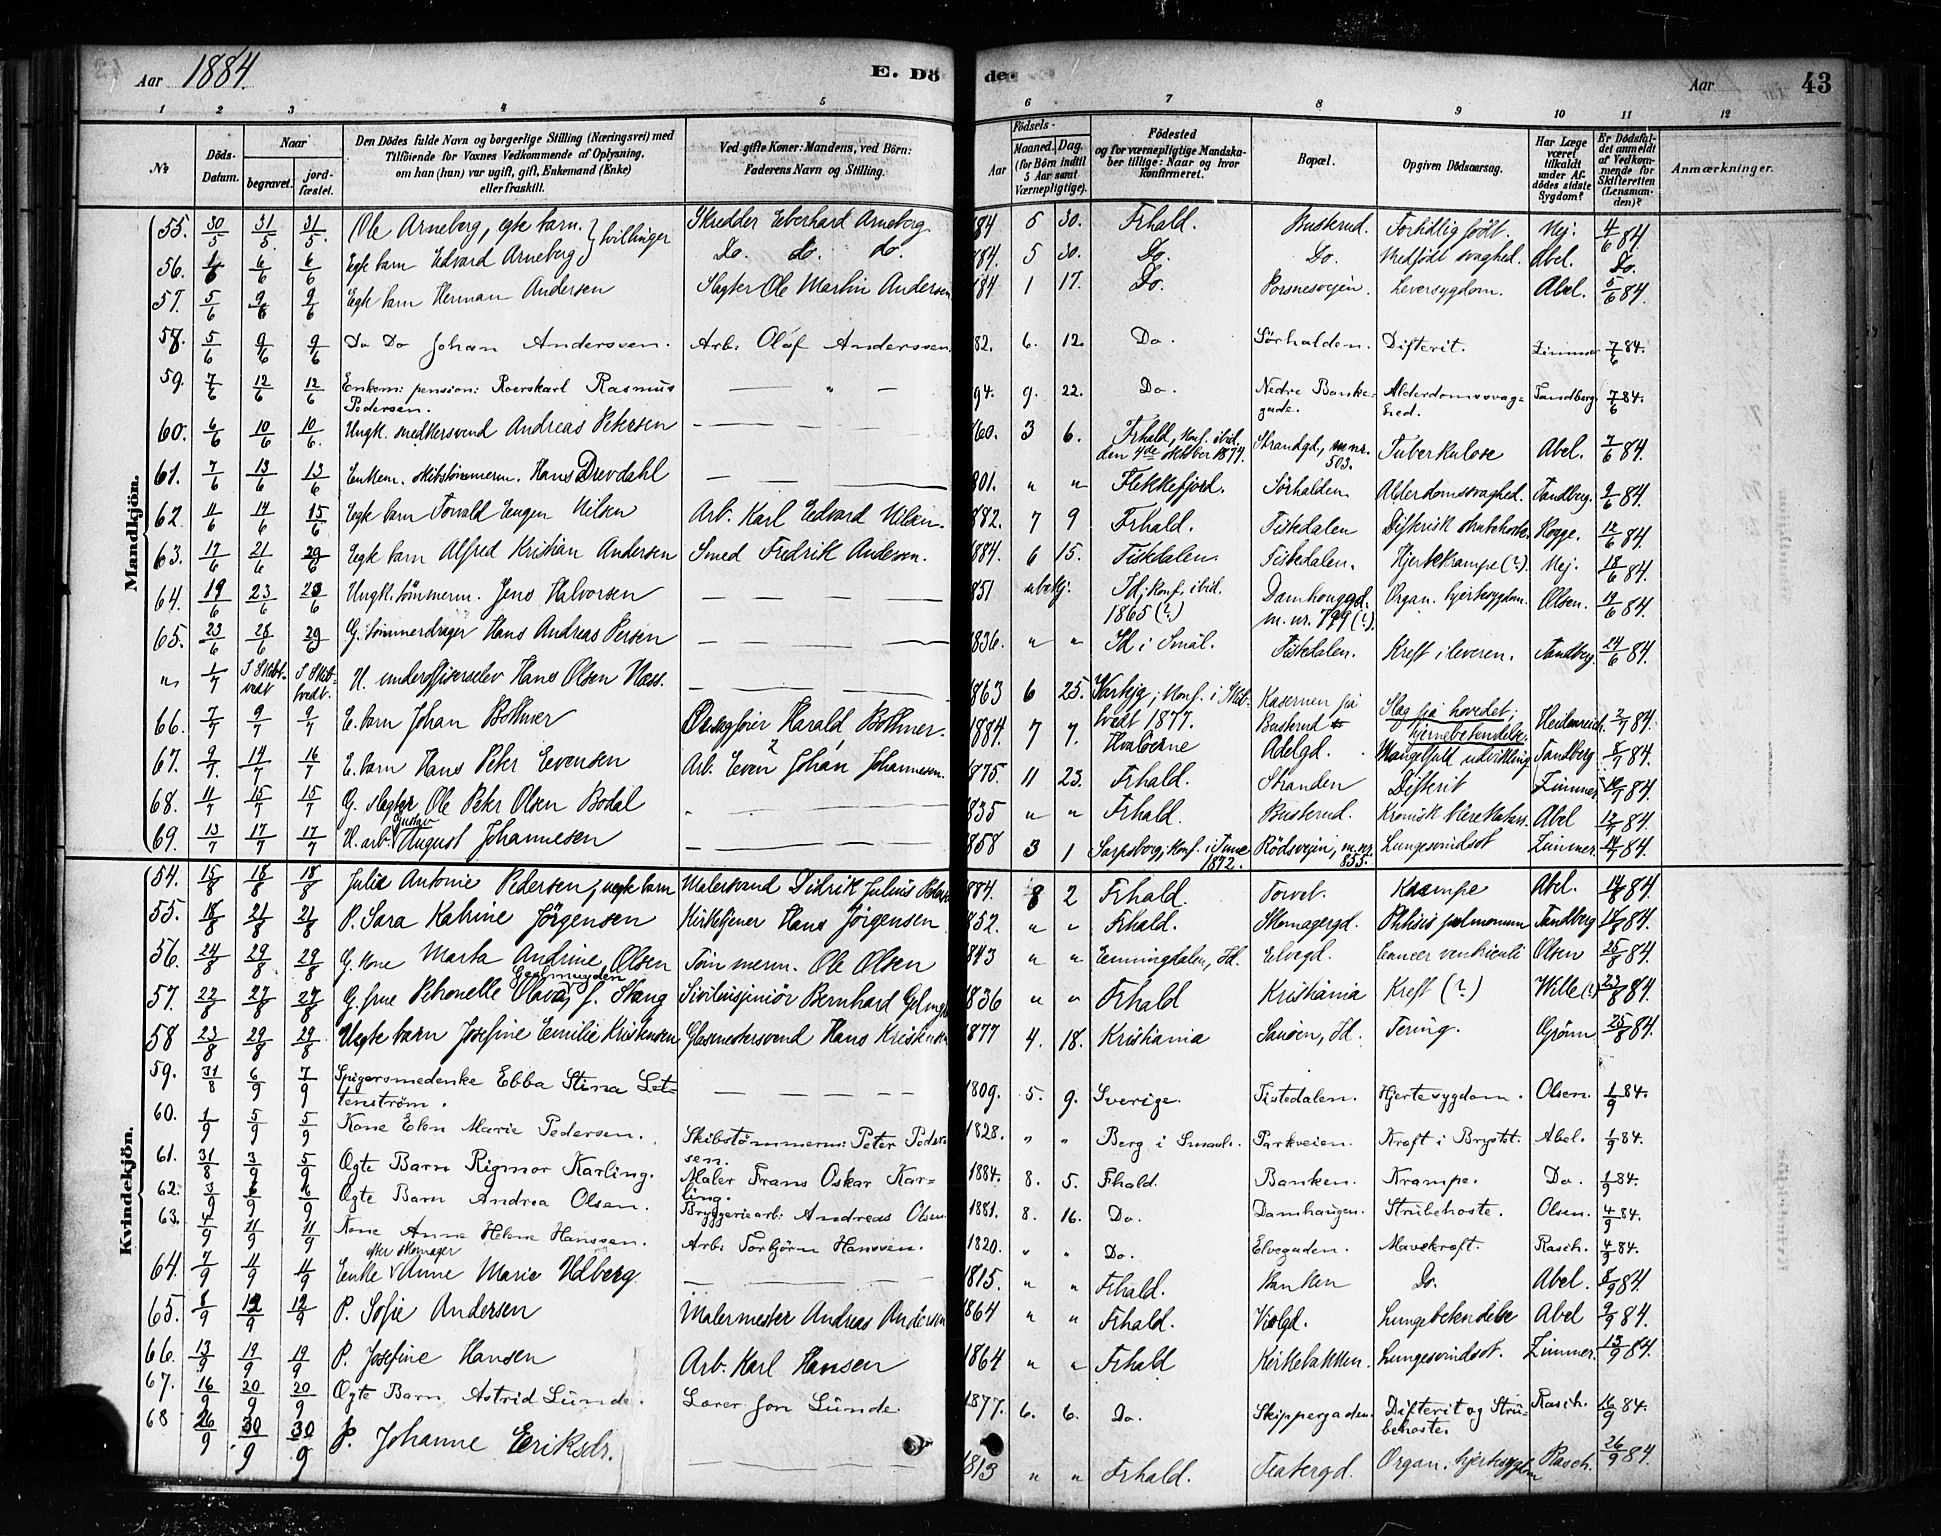 Aar 1884. E. Dö de Aar 43
1 2 3 4 5 6 7 8 9 10 11 12
No Döds-Datum. Naar begravet. jordfæstet. Den Dödes fulde Navn og borgerlige Stilling (Næringsvei) med Tilföiende for Voxnes Vedkommende af Oplysning, om han (hun) var ugift, gift, Enkemand (Enke) eller fraskilt. Ved gifte Koner: Mandens, ved Börn: Faderens Navn og Stilling. Födsels- Aar Maaned. Dag. (for Börn indtil 5 Aar samt Værnepligtige). Födested og for værnepligtige Mandskaber tillige: Naar og hvor Konfirmeret. Bopæl. Opgiven Dödsaarsag. Har Læge været tilkaldt under Afdödes sidste Sygdom? Er Dödsfaldet anmeldt af Vedkommende for Skifteretten (Lensmanden)? Anmærkninger.
Mandkjön.
55. 30/5 31/5 31/5. Ole Arneberg, egte barn. } tvillinger Skredder Eberhard Arneberg 84 5 30. Frhald. Buskerud. Fortidlig født. Nej. 4/6 84.
56. 1/6 6/6 6/6 Egte barn Edvard Arneberg Do. do. do. 84. 5 30. Do. Do. Medfødt svaghed. Abel. Do.
57. 5/6 9/6 9/6 Egte barn Herman Andersen Slagter Ole Martin Andersen 84 1 17. Do. Porsnesvejen. Leversygdom. Abel. 5/6 84.
58. 5/6 9/6 9/6 Do Do Johan Anderssen. Arb. Olaf Anderssen 82. 6. 12. Do. Sörhalden. Difterit. Zimmer 7/6 84.
59. 7/6 12/6 12/6 Enkem: pension: Roerskarl Rasmus Pedersen. — " — 94. 9. 22. Do. Nedre Bankegade. Alderdomssvaghed. Tandberg 7/6 84.
60. 6/6 10/6 10/6. Ungk. smedkersvend Andreas Petersen — — — 60. 3 6. Frhald, konf. ibid. den 4de oktober 1874. Strandgd., m.nr. 503. Tuberkulose Abel. 7/6 84.
61. 7/6 13/6 13/6 Enkem. skibstømmerm. Hans Drevdahl — — — 801. " " Flekkefjord. Sörhalden. Alderdomssvaghed. Tandberg. 9/6 84.
62. 11/6 14/6 15/6 Egte barn Torvald Eugen Nilsen Arb. Karl Edvard Nilsen. 882. 7 9 Frhald. Tistedalen Difterisk strubehoste. Hogge. 12/6 84.
63. 17/6 21/6 29/6 Egte barn Alfred Kristian Andersen Smed Fredrik Andersen. 1884. 6 15. Tistedalen. Tistedalen. Hjertekrampe (?). Nej. 18/6 84.
64. 19/6 23/6 23/6 Ungk. tömmerm. Jens Halvorsen — — — 851 ubekj. Id; konf. ibid. 1865 (?) Damhouggd. m.nr. 799 (?). Organ. hjertesygdom. Olsen. 19/6 84.
65. 23/6 28/6 29/6 G. tömmerdrager Hans Andreas Persen — — — 1836. " " Id i Smål. Tistedalen. Kreft i leveren. Tandberg. 24/6 84.
" 1/7 I Skibtvedt I Skibtvedt. U. underofficerselev Hans Olsen Næss. — — — 1863 6 25. Varteig; konf. i Skibtvedt 1877. Kasernen på Buskerud Slag på hovedet; hjernebetendelse. Heidenreich. 2/7 84.
66. 7/7 9/7 9/7 E. barn Johan Bothner Orlogsfører Harald Bothner. 1884. 7 7. Hvalöerne Adelgd. Mangelfuld udvikling Tandberg. 8/7 84.
67. 9/7. 14/7 16/7 E. barn Hans Peter Evensen Arb. Even Johan Johannesen. 1875. 11 23. Frhald. Stranden Difterit Zimmer 10/7 84.
68. 11/7 15/7 15/7 G. slagter Ole Peter Olsen Bodal — — — 1835 " " Frhald. Buskerud. Kronisk blærekatarr. Abel 12/7 84.
69. 13/7 17/7 17/7 U. arb. Gustav August Johannesen — — — 1858 3 1 Sarpsborg; konf. i Tune 1872. Rödsvejen, m.nr. 855. Lungesvindsot Zimmer. 14/7 84.
Kvindekjön.
54. 15/8 18/8 18/8 Julie Antonie Pedersen, uegte barn Malersvend Didrik Julius Pedersen 884. 8 2 Frhald. Torvet. Krampe Abel. 14/8 84.
55. 18/8 21/8 21/8 P. Sara Katrine Jörgensen Kirketjener Hans Jörgensen 852. " " Frhald. Skomagergd. Phtisis pulmonum Tandberg 18/8 84.
56. 24/8 29/8 29/8 G. kone Marta Andrine Olsen Tömmerm. Ole Olsen 843 " " Enningdalen, Id. Elvegd. Cancer ventriculi Olsen 25/8 84.
57. 22/8 27/8 27/8 G. frue Petronelle Olava Geelmuyden, f. Stang Sivilinsjeniör Bernhard 1836 " " Frhald Kristiania Kreft (?) Wille (?) 23/8 84.
58 23/8 29/8 29/8 Uegte barn Josefine Emilie Kristensen Glasmestersvend Hans Kristensen 1877 4. 18. Kristiania Sauöen, Id. Tæring. Grönn 25/8 84.
59. 31/8 6/9 7/9 Spigersmedenke Ebba Stina Lettenström. — — — 1809. 5. 9. Sverige. Tistedalen. Hjertesygdom. Olsen. 1/9 84.
60. 1/9 5/9 5/9 Kone Elen Marie Pedersen. Skibstömmerm: Peter Pedersen. 1828. " " Berg i Smaal. Parkveien. Kræft i Brystet. Abel. 1/9 84.
61. 31/8 3/9 5/9 Ægte Barn Rigmor Karling. Maler Frans Oskar Karling. 1884. 8. 5. Fhald. Banken. Krampe. Do. 1/9 84.
62. 3/9 6/9 6/9 Ægte Barn Andrea Olsen. Bryggeriearb: Andreas Olsen 1881. 8. 16. Do. Damhaugen. Strubehoste. Olsen. 4/9 84.
63. 4/9 11/9 11/9 Kone Anne Helene Hanssen. Arb: Torbjörn Hanssen. 1820. " " Do. Elvegaden. Mavekræft. Rasch. 4/9 84.
64. 7/9 11/9 11/9 Enke efter skomager Anne Marie Udberg. — — — 1815. " " Frhald. Banken Do. Abel. 8/9 84.
65. 8/9 12/9 12/9 P. Sofie Andersen Malermester Andreas Andersen 1864 " " Frhald. Violgd. Lungebetendelse Abel 9/9 84.
66. 13/9 19/9 19/9 P. Josefine Hansen Arb. Karl Hansen 1864 " " Frhald Kirkebakken. Lungesvindsot. Zimmer. 13/9 84.
67. 16/9 20/9 20/9 Ægte Barn Astrid Lunde. Lærer Jon Lunde 1877. 6. 6. Do. Skippergaden. Difterit og Strubehoste. Rasch. 16/9 84.
68 26/9 30/9 30/9 P. Johanne Eriksdr. — — — 1813 " " Frhald. Teatergd. Organ. hjertesygdom Rasch. 26/9 84.